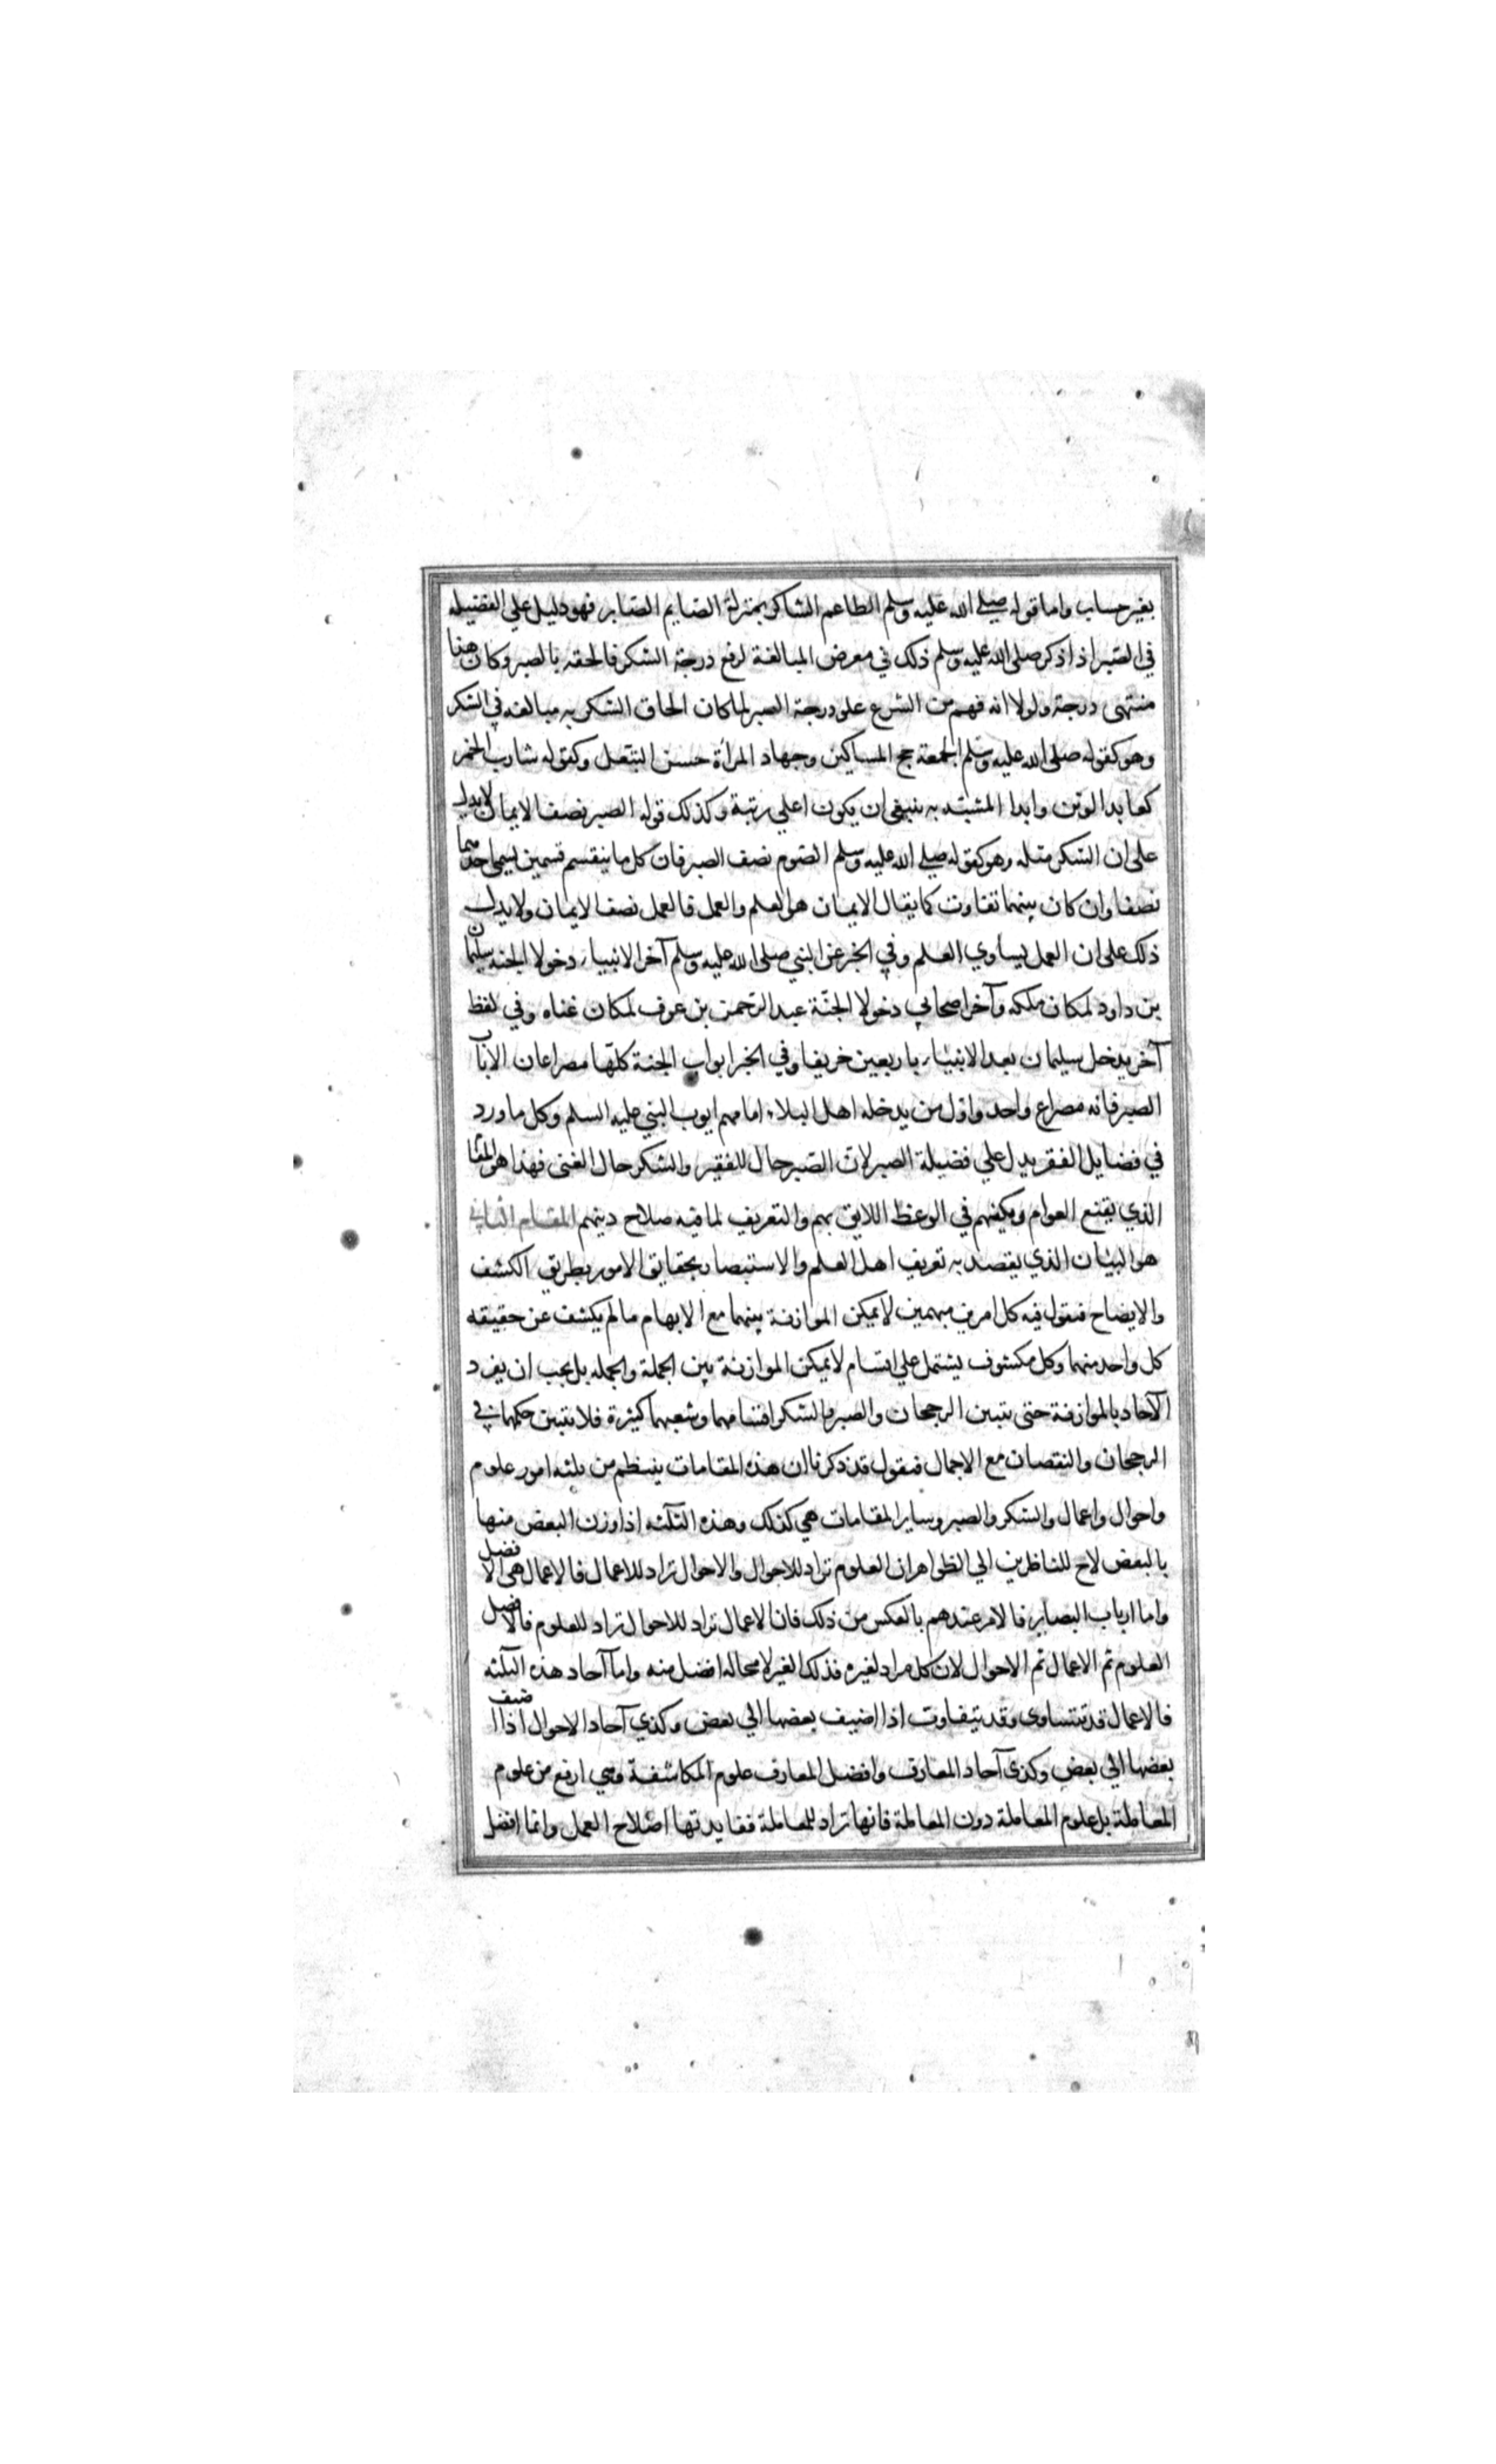 بغير حساب واما قوله صلى الله عليه وسلم الطاعم الشاكر بمنزلة الصايم الصابر فهو دليل علي الفضيله
في الصبر اذ اذكر صلى الله عليه وسلم ذلك في معرض المبالغة لرفع درجة الشكر فالحقه بالصبر وكان هذا
منتهى درجته ولولا انه فهم من الشرع علو درجة الصبر لما كان الحاق الشكر به مبالغه في الشكر
وهو كقوله صلى الله عليه وسلم الجمعة حج المساكين وجهاد المرأة حسن التبعل وكقوله شارب الخمر
كعابد الوثن وابدا المشبّه به ينبغى ان يكون اعلي رتبة وكذلك قوله الصبر نصف الايمان لايدل
على ان الشكر مثله وهو كقوله صلى الله عليه وسلم الصوم نصف الصبر فان كل ما ينقسم قسمين يسمى احدهما
نصفا وان كان بينهما تفاوت كما يقال الايمان هو العلم والعمل فالعمل نصف الايمان ولا يدل
ذلك على ان العمل يساوي العلم وفي الخبر عن النبي صلى الله عليه وسلم آخر الانبياء دخولا الجنه سليمان
بن داود لمكان ملكه وآخر اصحابي دخولا الجنّة عبد الرحمن بن عوف لمكان غناه وفي لفظ
آخر يدخل سليمان بعد الانبياء باربعين خريفا وفي الخبر ابواب الجنة كلّها مصراعان الا باب
الصبر فانه مصراع واحد واول من يدخله اهل البلاء امامهم ايوب النبي عليه السلم وكل ما ورد
في فضايل الفقر يدل علي فضيلة الصبر لان الصبر حال الفقير والشكر حال الغنى فهذا هو المقام
الذي يقنع العوام ويكفيهم في الوعظ اللايق بهم والتعريف لما فيه صلاح دينهم المقام الثاني
هو البيان الذي يقصد به تعريف اهل العلم والاستبصار بحقايق الامور بطريق الكشف
والايضاح فنقول فيه كل امرين مبهمين لايمكن الموازنة بينهما مع الابهام مالم يكشف عن حقيقه
كل واحد منهما وكل مكشوف يشتمل علي اقسام لايمكن الموازنة بين الجملة والجمله بل يجب ان يفرد
الآحاد بالموازنة حتى يتبين الرجحان والصبر والشكر اقسامهما وشعبهما كثيرة فلا يتبين حكمهما في
الرجحان والنقصان مع الاجمال فنقول قد ذكرنا ان هذه المقامات ينتظم من ثلثه امور علوم
واحوال واعمال والشكر والصبر وساير المقامات هي كذلك وهذه الثلثه اذا وزن البعض منها
بالبعض لاح للناظرين الي الظواهر ان العلوم تراد للاحوال والاحوال تراد للاعمال فالاعمال هي الافضل
واما ارباب البصاير فالامر عندهم بالعكس من ذلك فان الاعمال تراد للاحوال تراد للعلوم فالافضل
العلوم ثم الاعمال ثم الاحوال لان كل مراد لغيره فذلك الغير لامحاله افضل منه واما آحاد هذه الثلثه
فالاعمال قد تتساوى وقد تتفاوت اذا اضيف بعضها الي بعض وكذي آحاد الاحوال اذا اضيف
بعضها الي بعض وكذى آحاد المعارف وافضل المعارف علوم المكاشفة وهي ارفع من علوم
المعاملة بل علوم المعاملة دون المعاملة فانها تراد للمعاملة ففايدتها اصلاح العمل وانما افضل